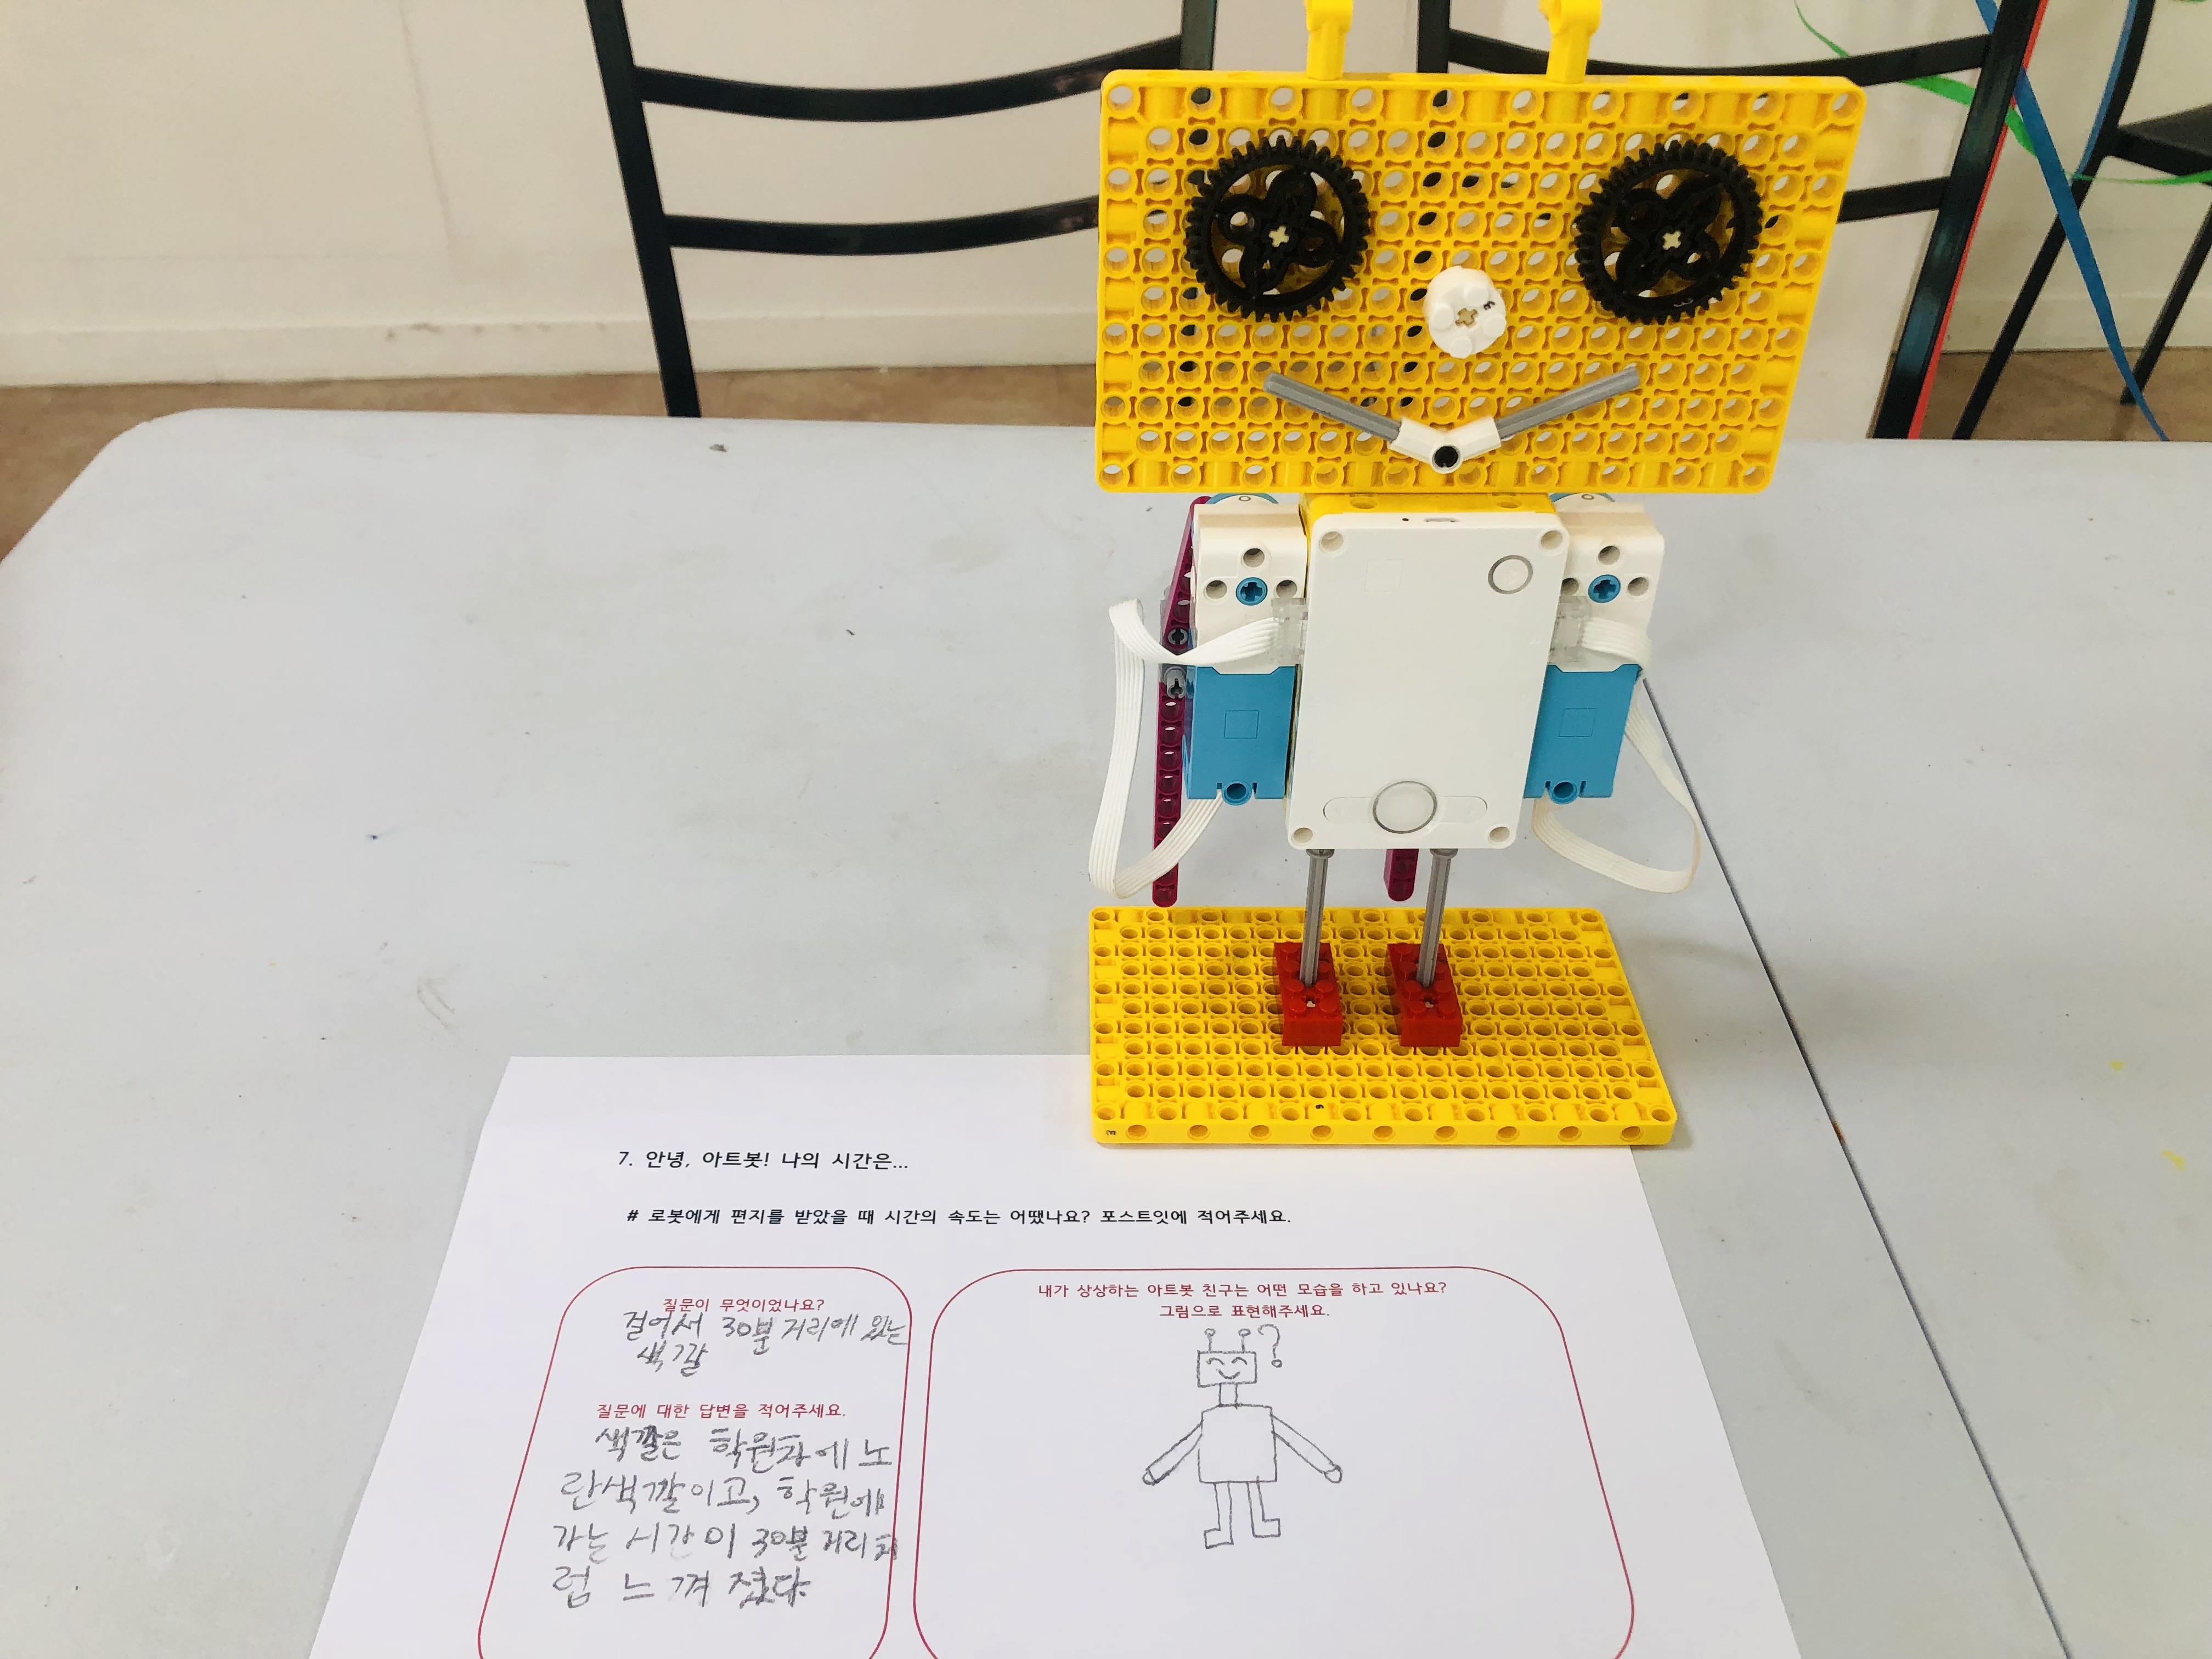 7. 안녕, 아트봇! 나의 시간은...
# 로봇에게 편지를 받았을 때 시간의 속도는 어땠나요? 포스트잇에 적어주세요.
질문이 무엇이었나요?
걸어서 30분 거리에 있는
색깔
질문에 대한 답변을 적어주세요.
색깔은 학원차에 노
란색깔이고, 학원에
가는 시간이 30분 거리처
럼 느껴졌다.
내가 상상하는 아트봇 친구는 어떤 모습을 하고 있나요?
그림으로 표현해주세요.
?